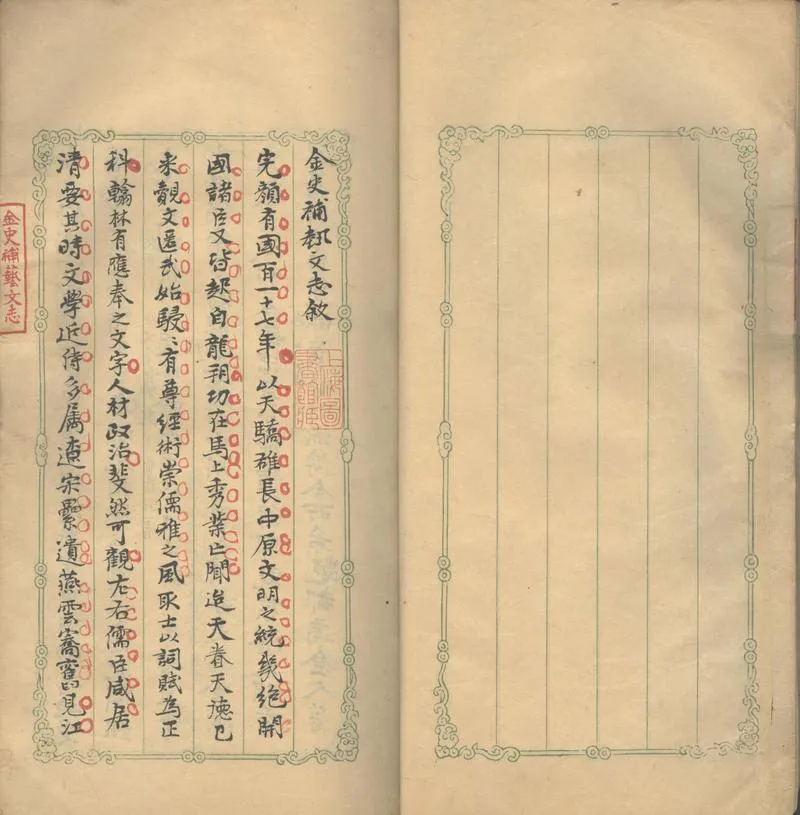 金史補埶文志敘
完顏有國百一十七年以天驕雄長中原文明之統幾絶開
國諸臣又皆起自龍朔功在馬上秀業亡聞迨天眷天德已
来觀文匿武始駸〻有尊經術崇儒雅之風取士以詞賦為正
科翰林有應奉之文字人材政治斐然可觀左右儒臣咸居
清要其時文學近侍多属遼宋纍遺燕雲喬舊見江
上海圖
書館藏
金史補藝文志